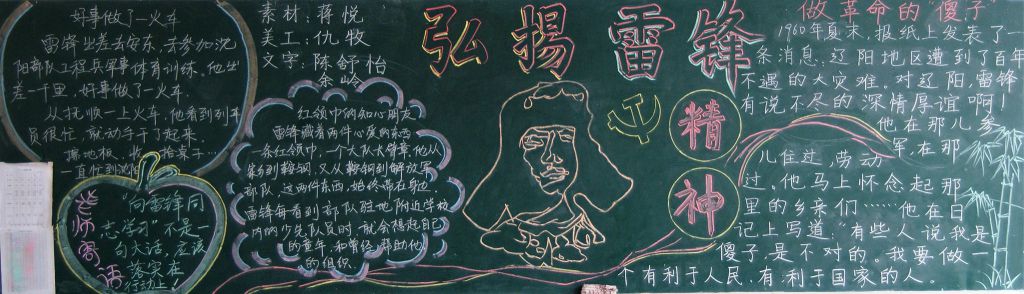 好事做了一火车
雷锋出差去安东，去参加沈
阳部队工程兵军事体育训练。他出
差一千里，好事做了一火车
从抚顺一上火车，他看到列车
员很忙，就动手干了起来
擦地板
一直忙到沈阳
老师寄语
“向雷锋同
志学习”不是一
句大话，应该
落实在
行动上！
素材：蒋悦
美工：仇牧
文字：陈舒怡
余岭
红领巾的知心朋友
雷锋藏着两件心爱的东西
一条红领巾，一个大队长臂章，他从
家乡到鞍钢，又从鞍钢到解放军
部队，这两件东西，始终带在身边
雷锋每看到部队驻地附近学校
内的少先队员时，就会想起自己
的童年，和曾经帮助他
的组织
弘揚雷锋
精神
做革命的“傻子”
1960年夏末，报纸上发表了一
条消息，辽阳地区遭到了百年
不遇的大灾难。对辽阳，雷锋
有说不尽的深情厚谊啊！
他在那儿参
军，在那
儿住过，劳动
过。他马上怀念起那
里的乡亲们……他在日
记上写道，“有些人说我是
傻子，是不对的。我要做一
个有利于人民，有利于国家的人。